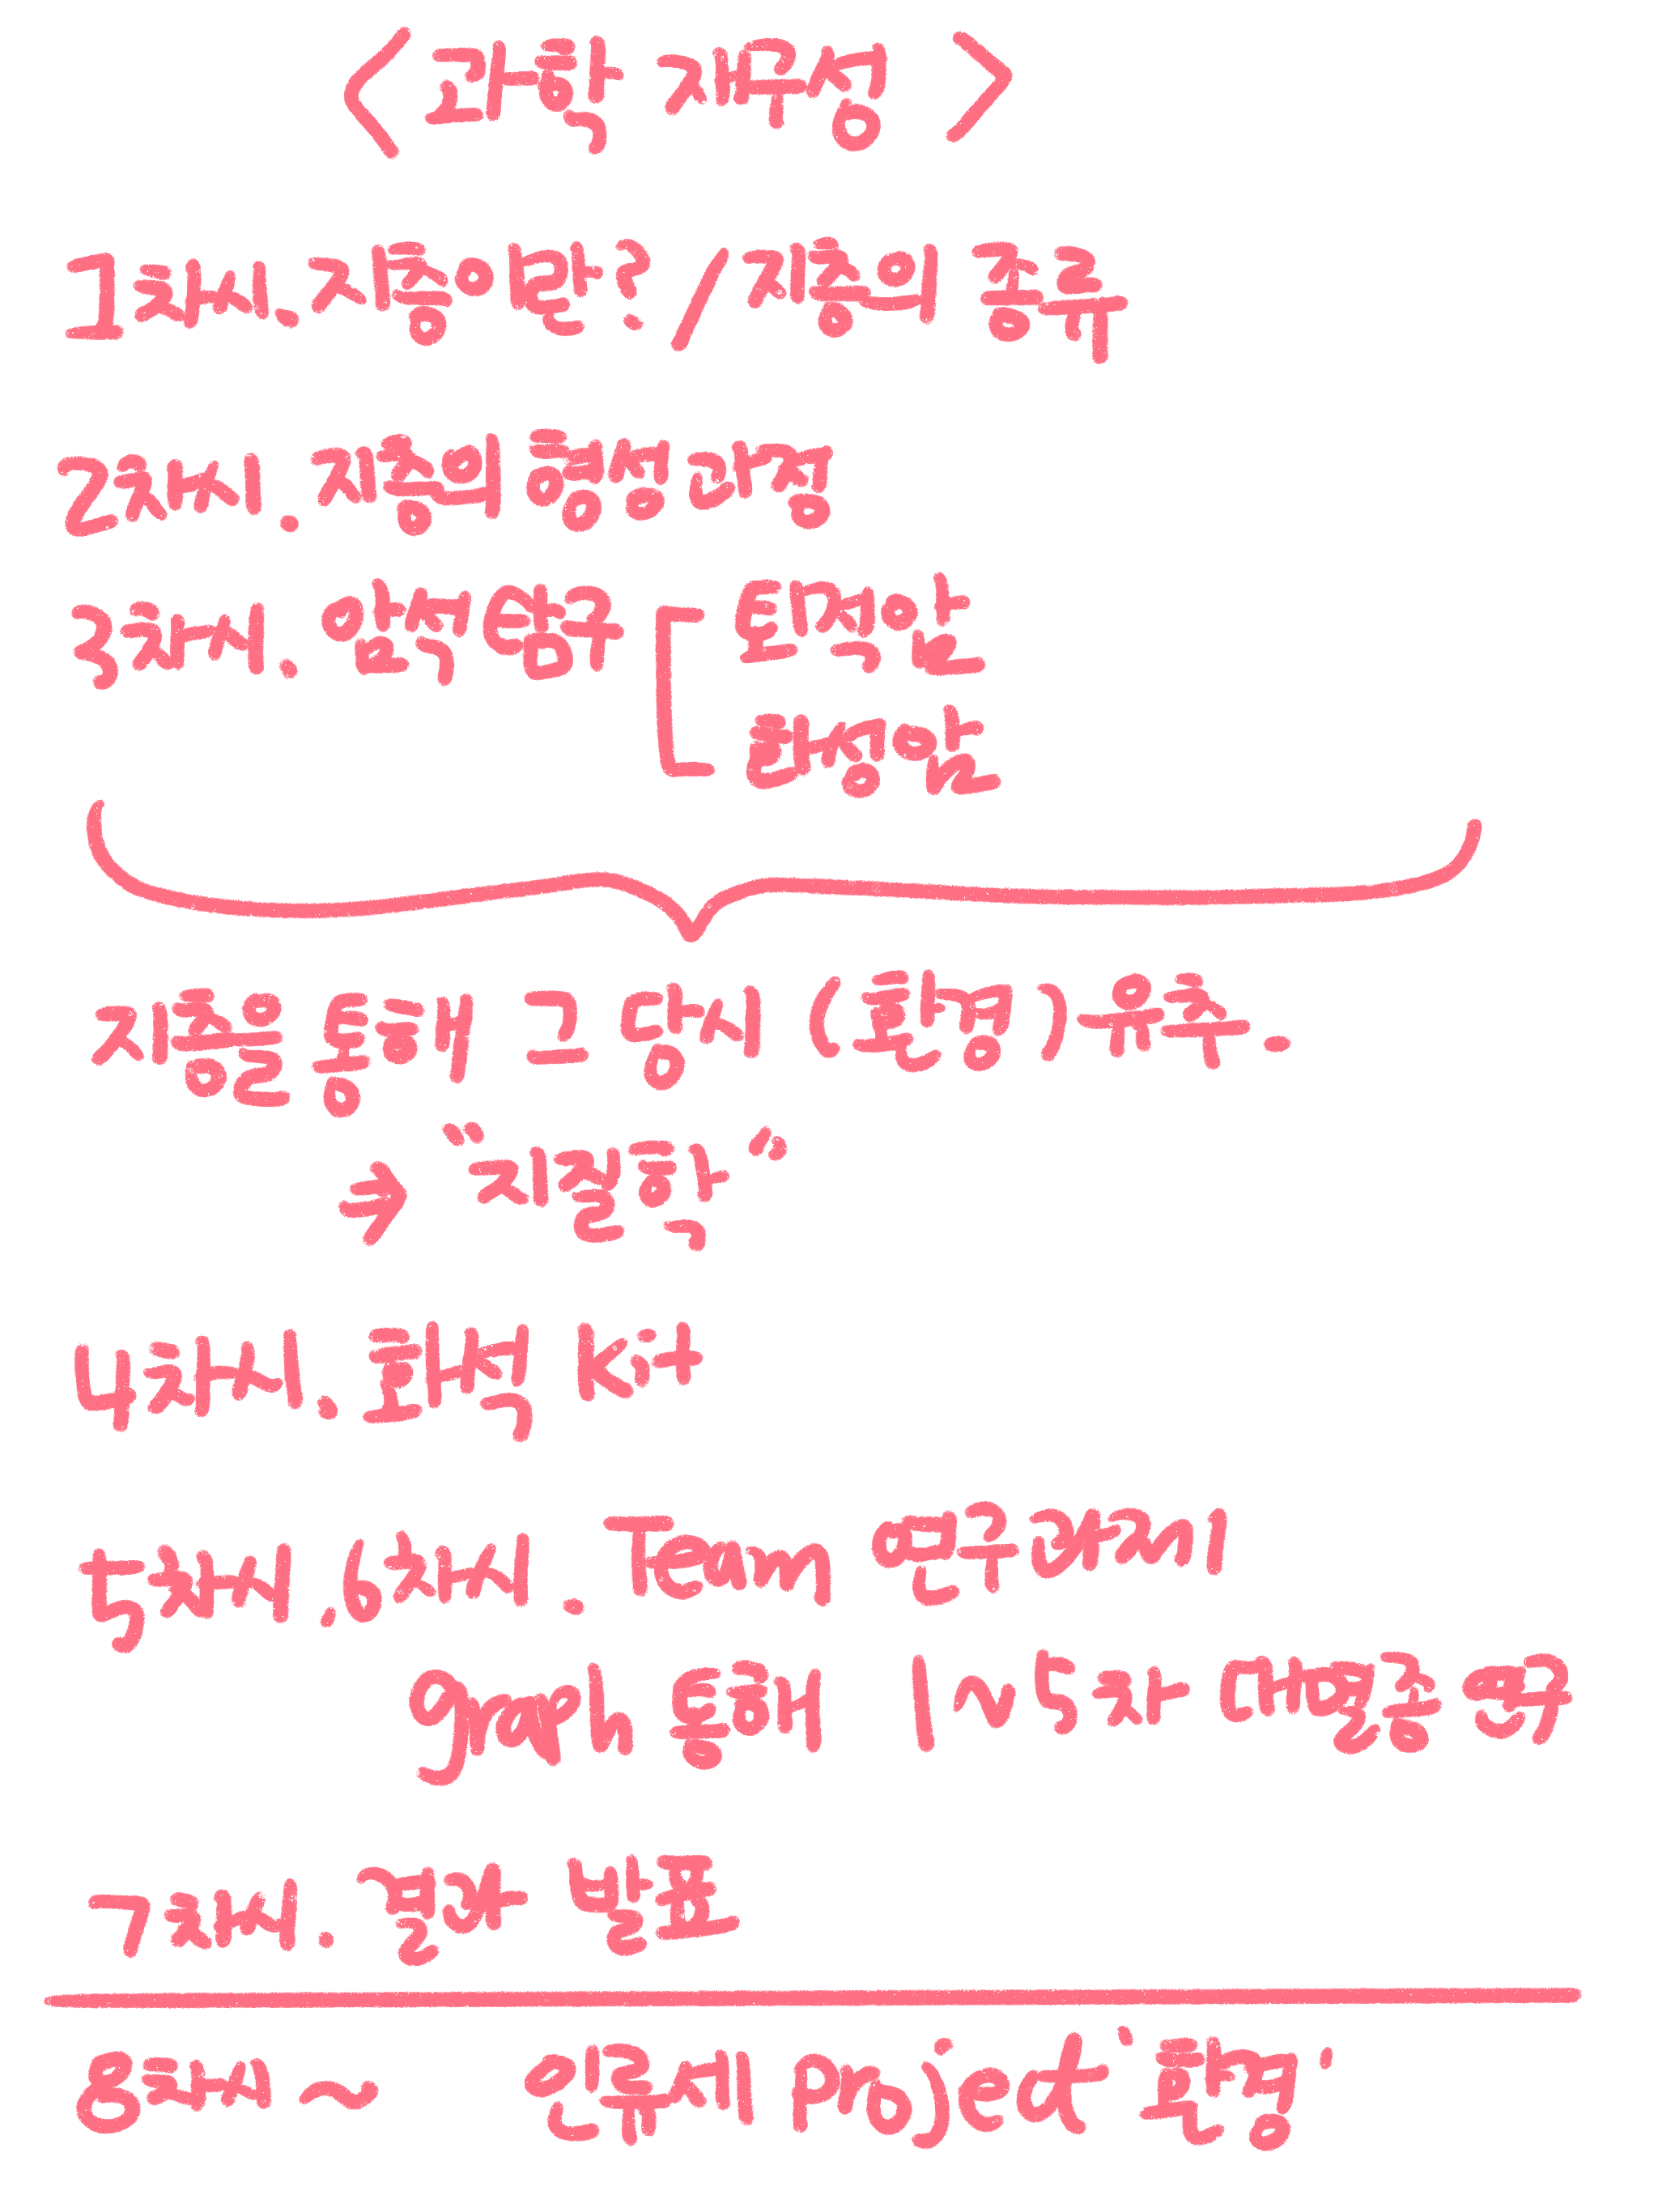 <과학 재구성>
1차시. 지층이란? / 지층의 종류
2차시. 지층의 형성과정
3차시. 암석탐구 [ 퇴적암
화성암
지층을 통해 그 당시 (환경) 유추.
⇒ "지질학"
4차시. 화석 Kit
5차시, 6차시. Team 연구과제
graph 통해 1~5차 대멸종 연구
7차시. 결과 발표
8차시 ~ 인류세 project '환경'